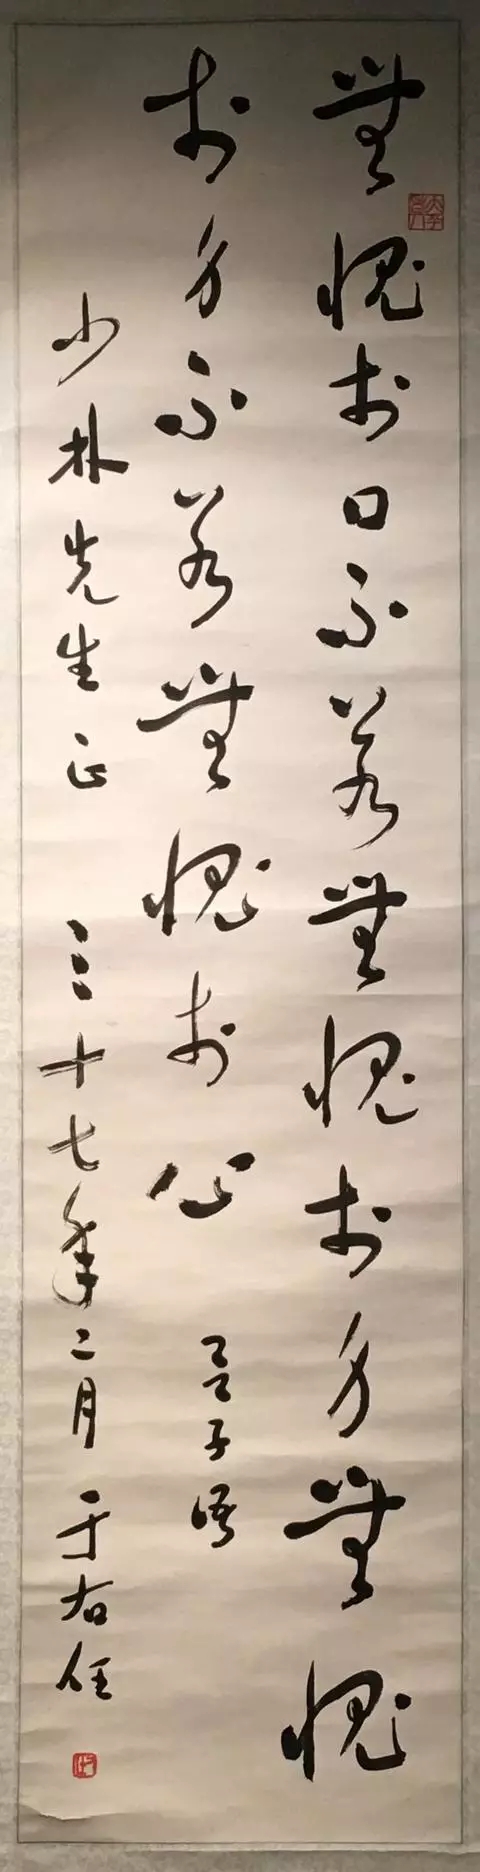 無愧於口不若無愧於身無愧
於身不若無愧於心
呂子語
少林先生正 三十七年二月 于右任